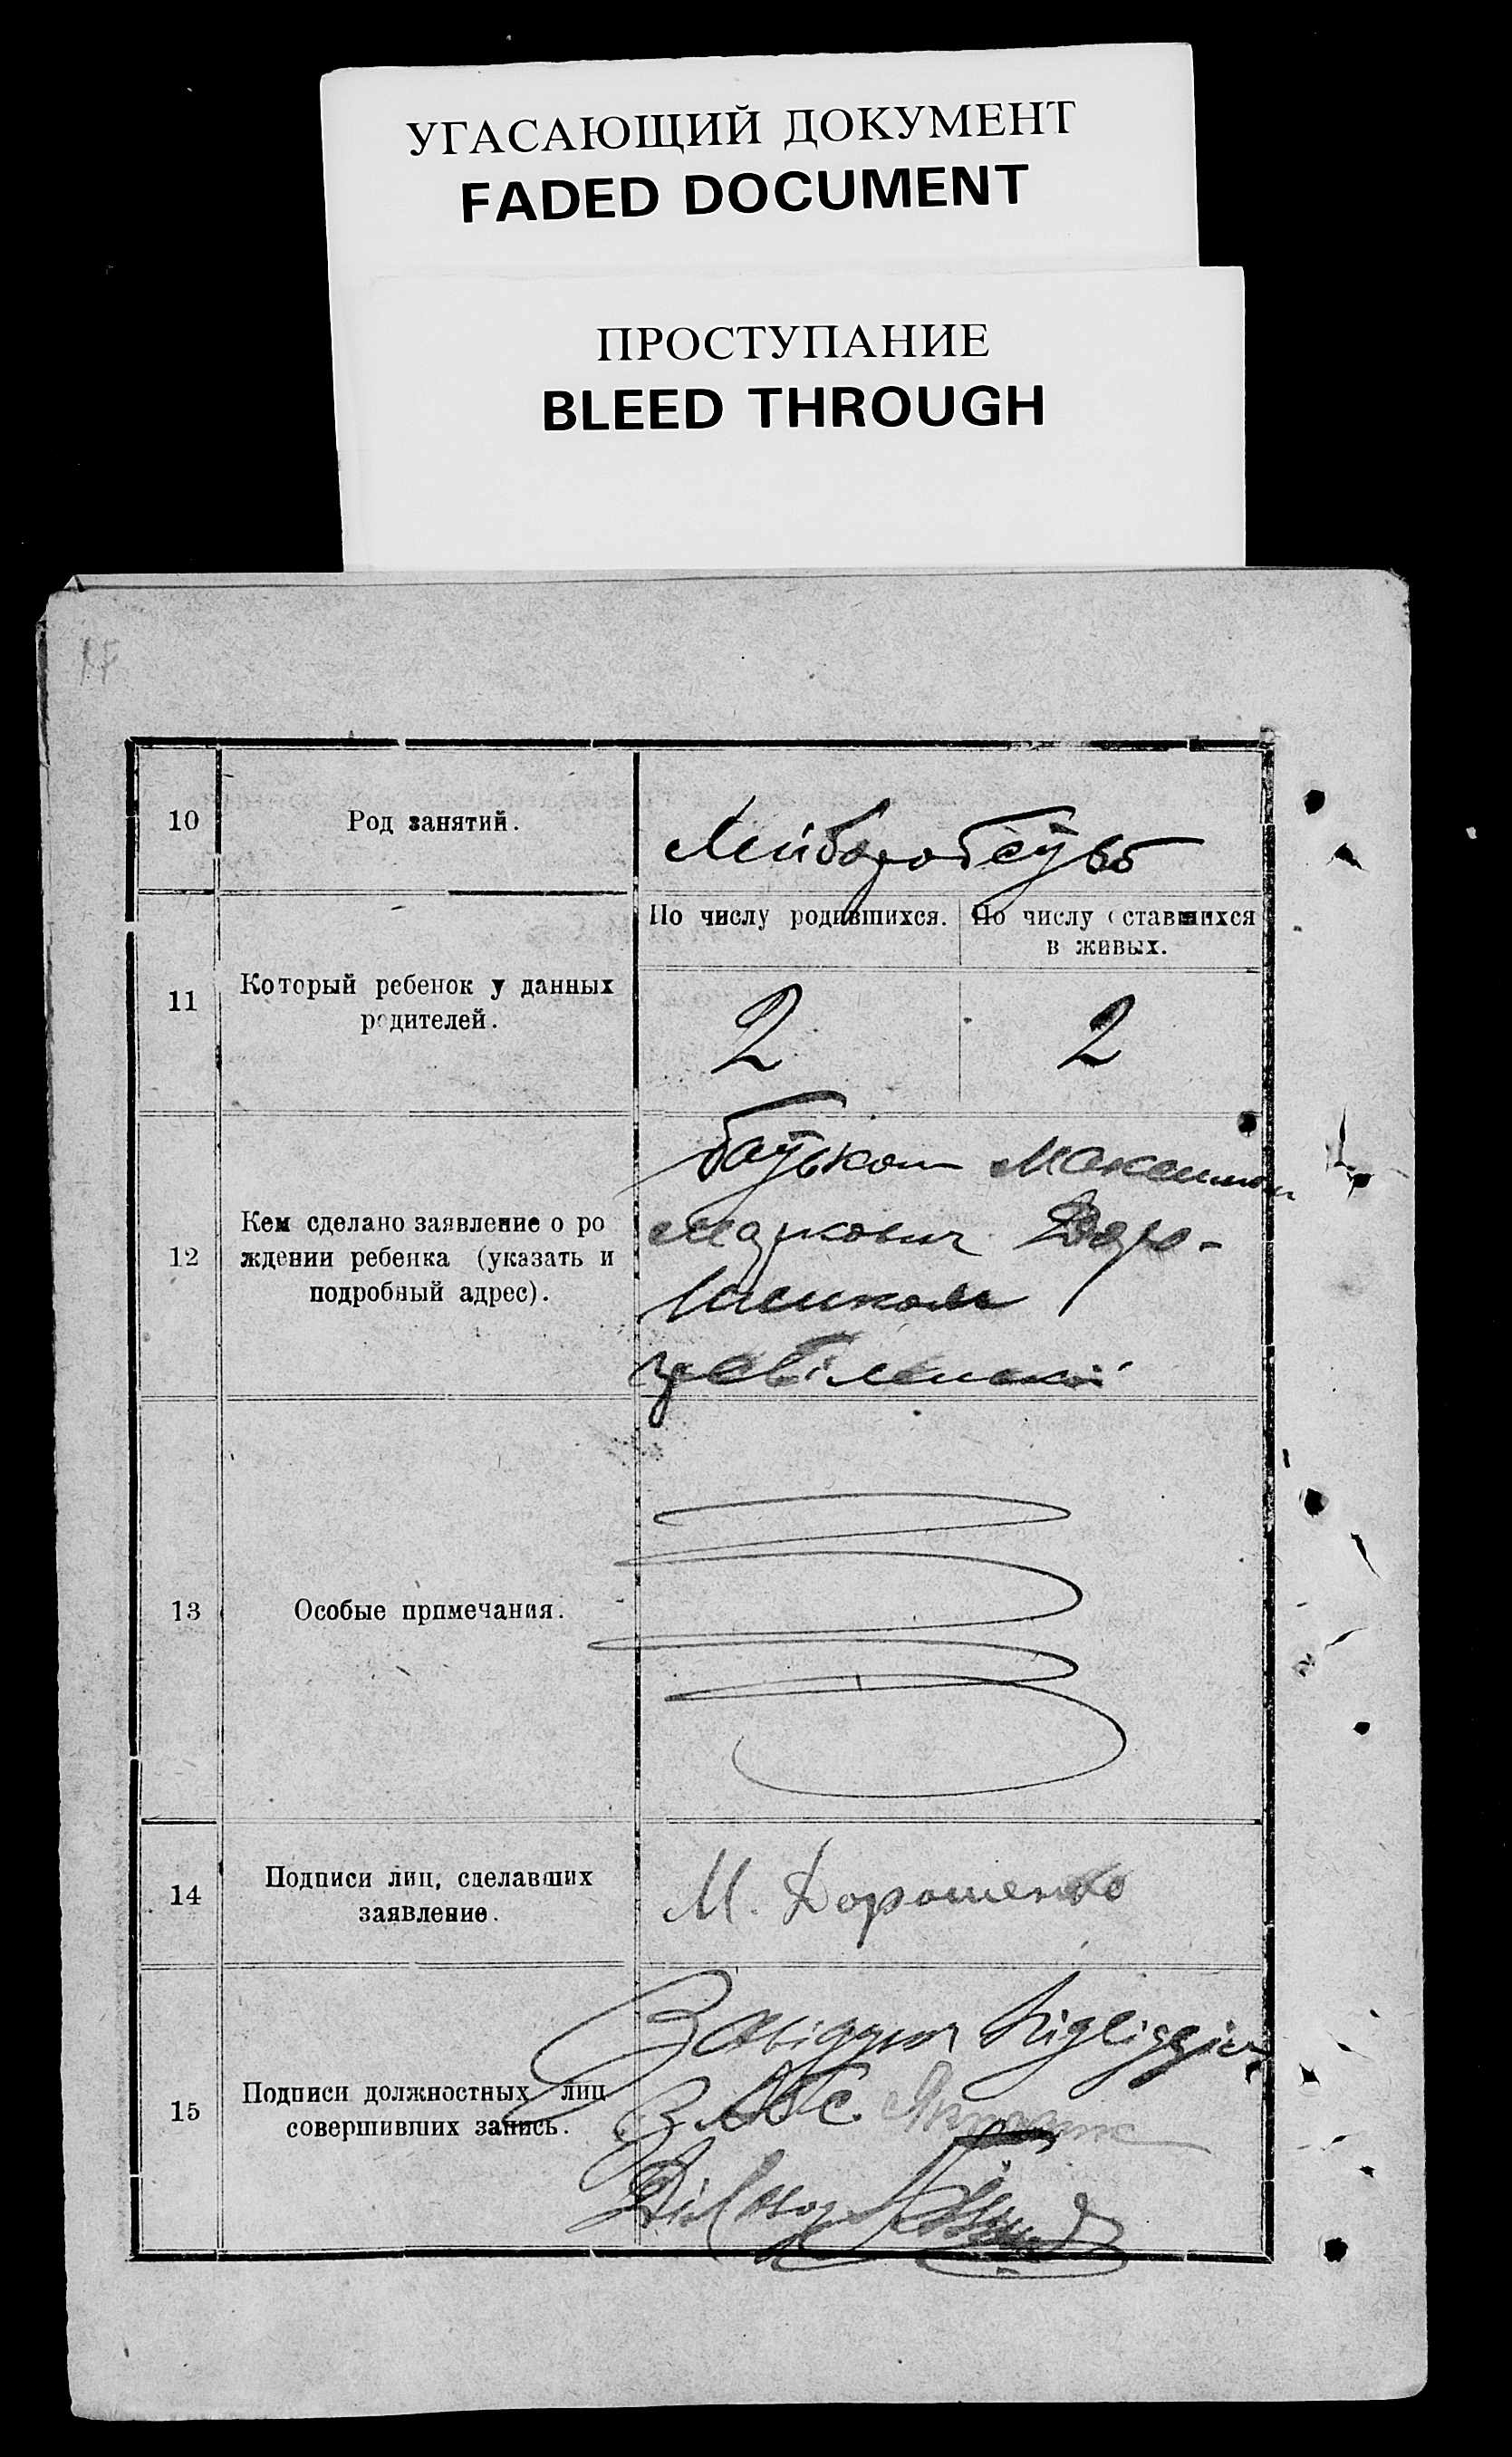 УГАСАЮЩИЙ ДОКУМЕНТ
FADED DOCUMENT
ПРОСТУПАНИЕ
BLEED THROUGH
17
10
Род занятий.
Хлиборобсув
11
Который ребенок у данных
родителей.
По числу родившихся.
По числу оставшихся
в живых.
2
2
12
Кем сделано заявление о ро
ждении ребенка (указать и
подробный адрес).
батьком Максимом
Марковим Доро-
шенком
13
Особые примечания.
14
Подписи лиц, сделавших
заявление.
М. Дорошенко
15
Подписи должностных лиц
совершивших запись.
Завідуючи підвідділ
ЗАГС
Діловод